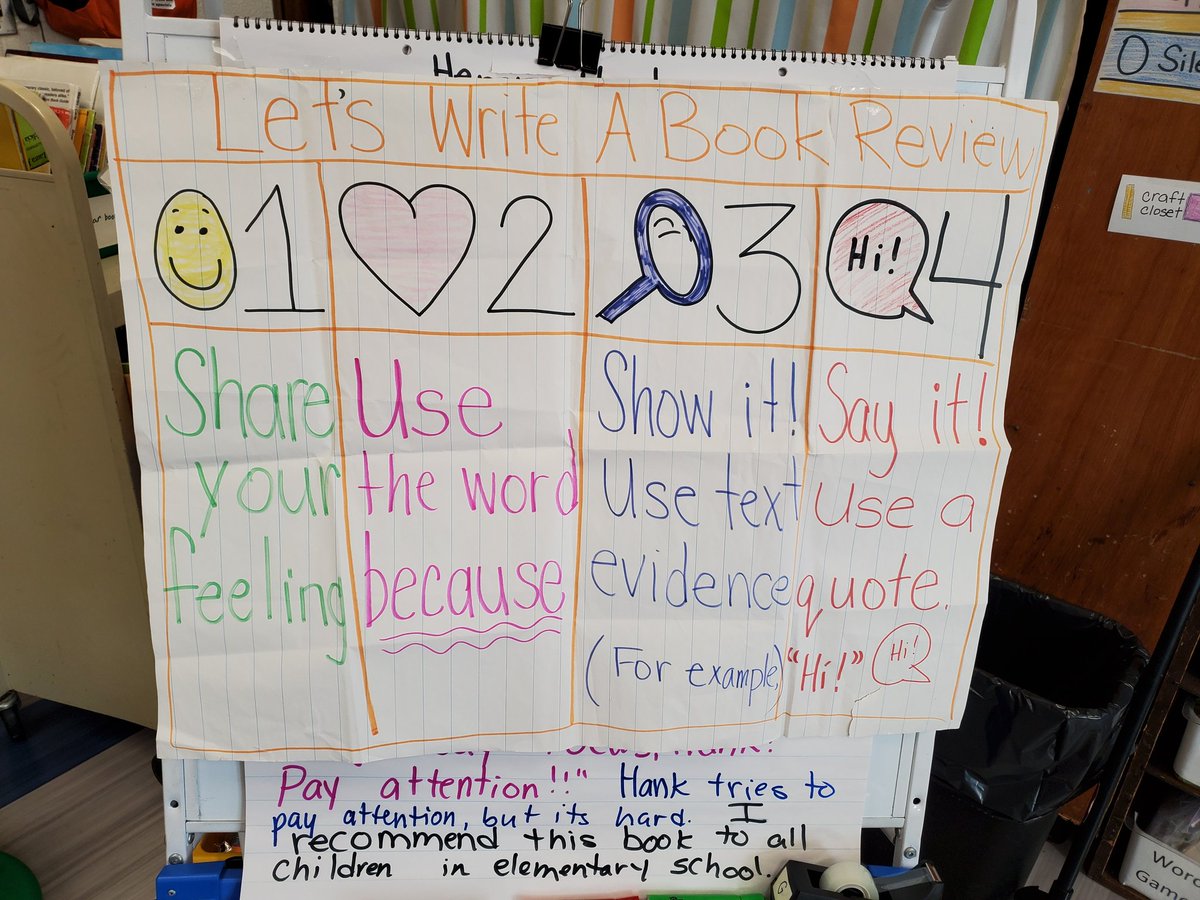 Let's Write A Book Review
1
2
3
Hi!
4
Share
your
feeling
Use
the word
because
Show it!
Use text
evidence
(For example,)
Say it!
Use a
quote.
"Hi!" Hi!
Pay attention!!" Hank tries to
pay attention, but its hard. I
recommend this book to all
children in elementary school.
0 Sile
craft
closet
Word
Game